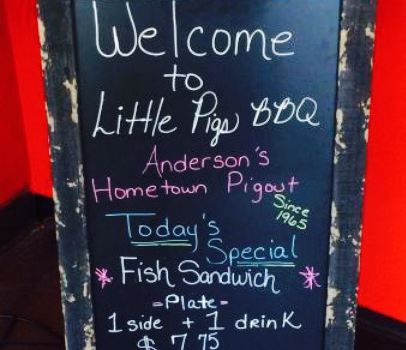 Welcome
to
Little Pigs BBQ
Anderson's
Hometown Pigout
Since
1965
Today's
Special
Fish Sandwich
-Plate-
1 side + 1 drink
$ 7.75